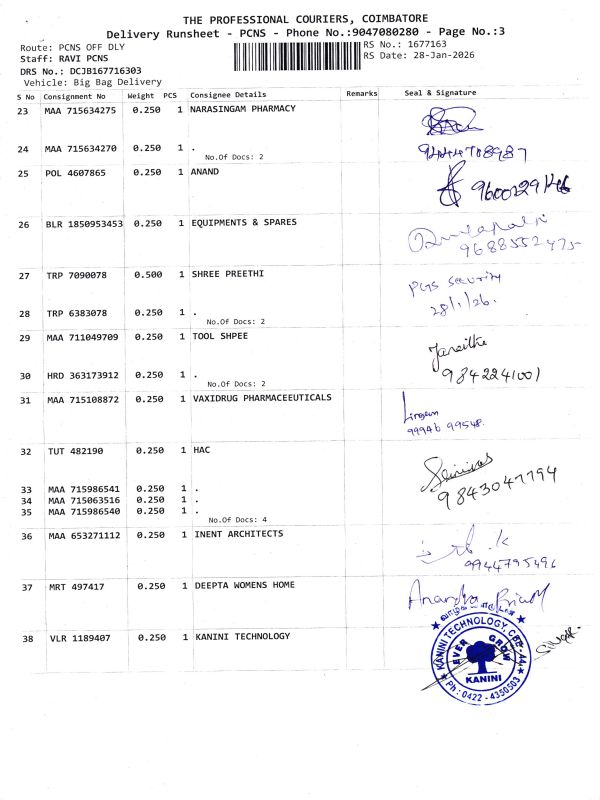 THE PROFESSIONAL COURIERS, COIMBATORE
Delivery Runsheet - PCNS - Phone No.:9047080280 - Page No.:3
Route: PCNS OFF DLY RS No.: 1677163
Staff: RAVI PCNS RS Date: 28-Jan-2026
DRS No.: DCJB167716303
Vehicle: Big Bag Delivery
S No Consignment No Weight PCS Consignee Details Remarks Seal & Signature
23 MAA 715634275 0.250 1 NARASINGAM PHARMACY
24 MAA 715634270 0.250 1 .
No.Of Docs: 2
25 POL 4607865 0.250 1 ANAND
26 BLR 1850953453 0.250 1 EQUIPMENTS & SPARES
9688552475
27 TRP 7090078 0.500 1 SHREE PREETHI
PGS security
28/1/26.
28 TRP 6383078 0.250 1 .
No.Of Docs: 2
29 MAA 711049709 0.250 1 TOOL SHPEE
30 HRD 363173912 0.250 1 .
9842241001
No.Of Docs: 2
31 MAA 715108872 0.250 1 VAXIDRUG PHARMACEEUTICALS
99946 99548.
32 TUT 482190 0.250 1 HAC
33 MAA 715986541 0.250 1 .
9843047794
34 MAA 715063516 0.250 1 .
35 MAA 715986540 0.250 1 .
No.Of Docs: 4
36 MAA 653271112 0.250 1 INENT ARCHITECTS
9944795496
37 MRT 497417 0.250 1 DEEPTA WOMENS HOME
38 VLR 1189407 0.250 1 KANINI TECHNOLOGY
KANINI TECHNOLOGY, CBE-44
EVER GROW
KANINI
Ph : 0422 - 4350503